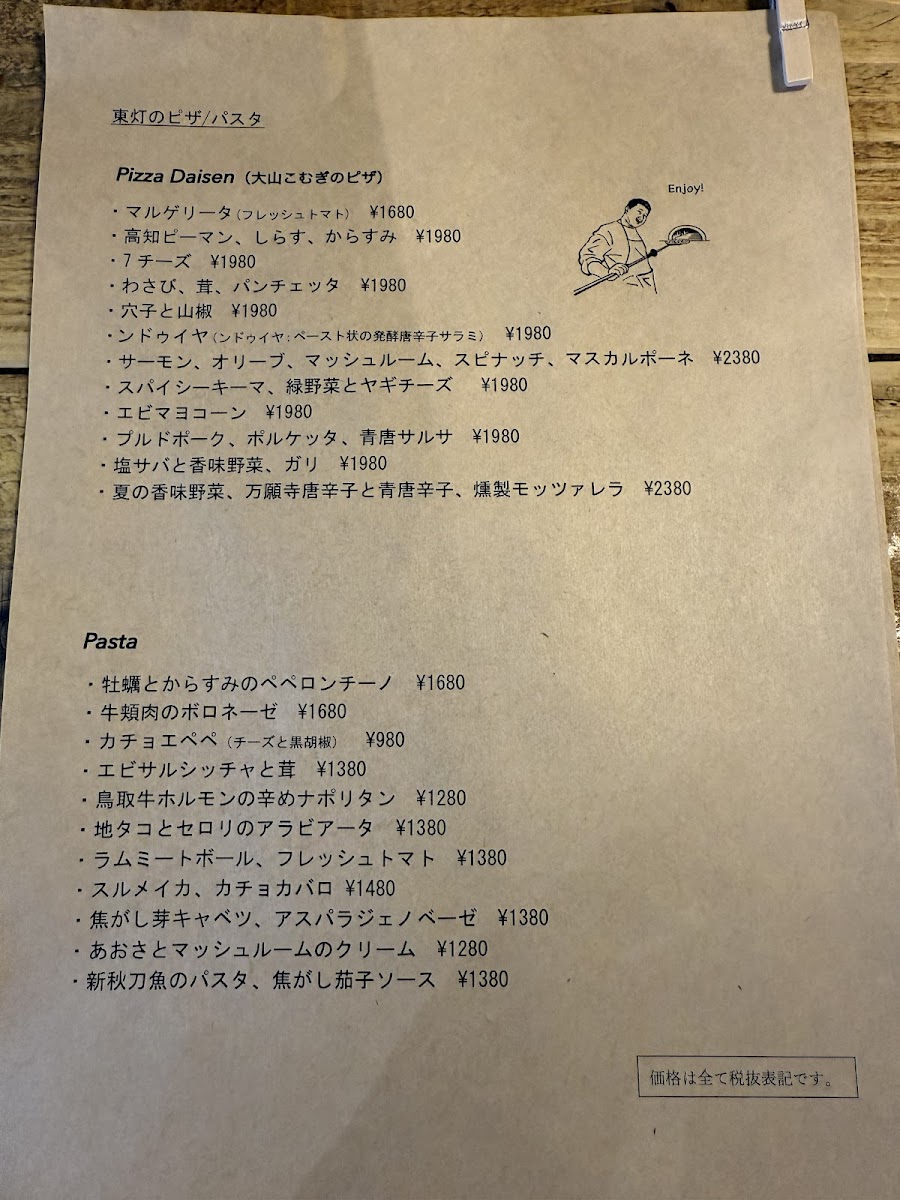 東灯のピザ/パスタ
Pizza Daisen（大山こむぎのピザ）
Enjoy!
・マルゲリータ（フレッシュトマト） ¥1680
・高知ピーマン、しらす、からすみ ¥1980
・7チーズ ¥1980
・わさび、茸、パンチェッタ ¥1980
・穴子と山椒 ¥1980
・ンドゥイヤ（ンドゥイヤ：ペースト状の発酵唐辛子サラミ） ¥1980
・サーモン、オリーブ、マッシュルーム、スピナッチ、マスカルポーネ ¥2380
・スパイシーキーマ、緑野菜とヤギチーズ ¥1980
・エビマヨコーン ¥1980
・プルドポーク、ポルケッタ、青唐サルサ ¥1980
・塩サバと香味野菜、ガリ ¥1980
・夏の香味野菜、万願寺唐辛子と青唐辛子、燻製モッツァレラ ¥2380
Pasta
・牡蠣とからすみのペペロンチーノ ¥1680
・牛頬肉のボロネーゼ ¥1680
・カチョエペペ（チーズと黒胡椒） ¥980
・エビサルシッチャと茸 ¥1380
・鳥取牛ホルモンの辛めナポリタン ¥1280
・地タコとセロリのアラビアータ ¥1380
・ラムミートボール、フレッシュトマト ¥1380
・スルメイカ、カチョカバロ ¥1480
・焦がし芽キャベツ、アスパラジェノベーゼ ¥1380
・あおさとマッシュルームのクリーム ¥1280
・新秋刀魚のパスタ、焦がし茄子ソース ¥1380
価格は全て税抜表記です。